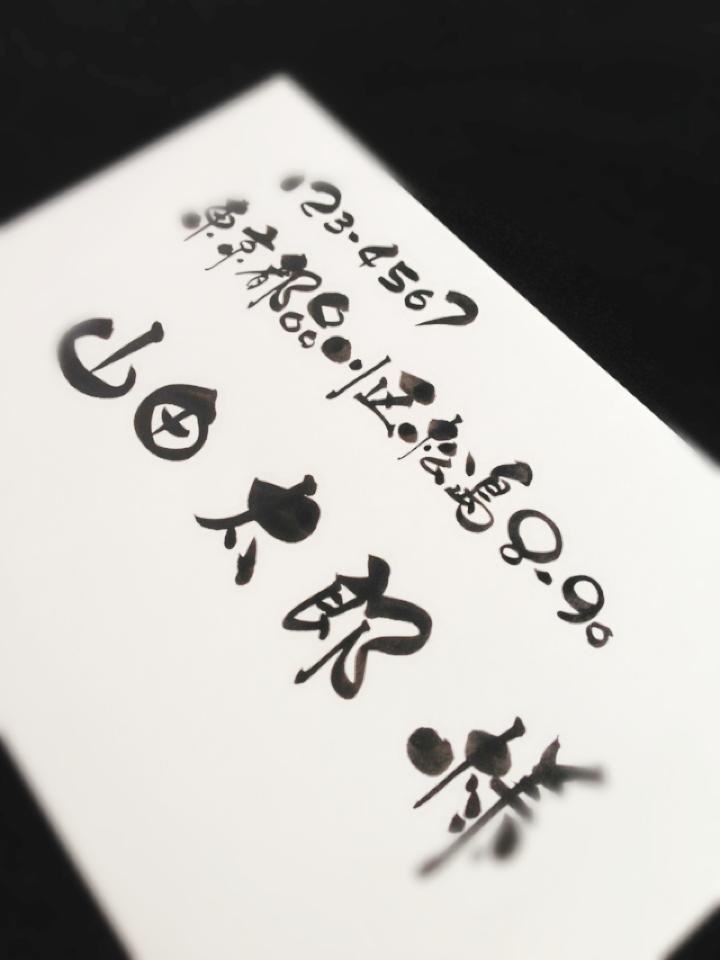 123-4567
東京都 区松島8-90
山田太郎様